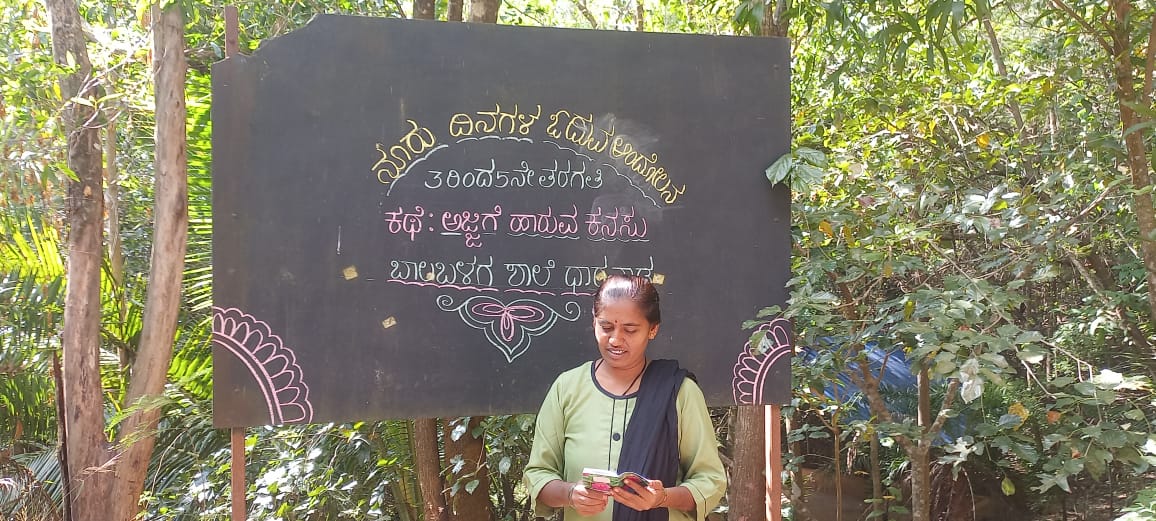 ನೂರು ದಿನಗಳ ಓದುವ ಅಂದೋಲನ
3 ರಿಂದ 5ನೇ ತರಗತಿ
ಕಥೆ : ಅಜ್ಜಿಗೆ ಹಾರುವ ಕನಸು
ಬಾಲಬಳಗ ಶಾಲೆ ಧಾರವಾಡ